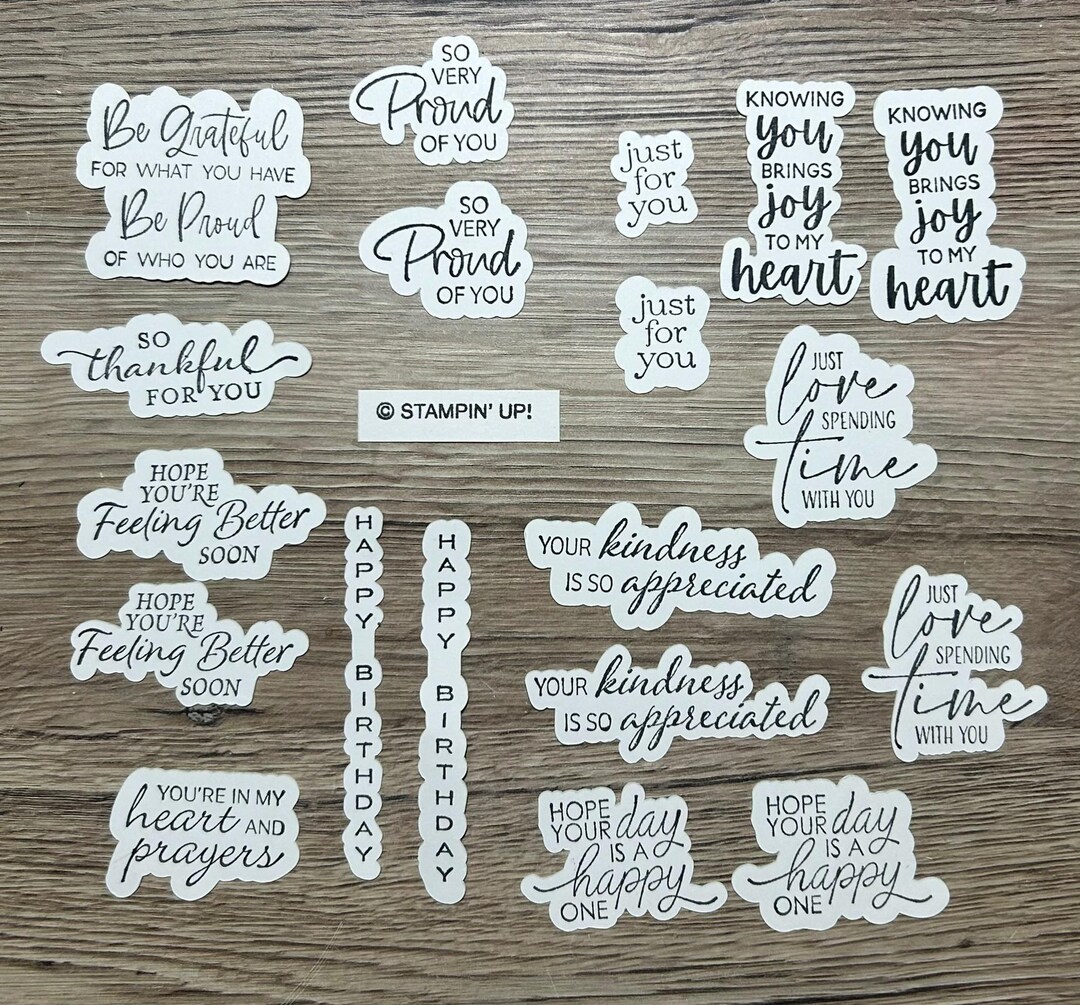 Be Grateful
FOR WHAT YOU HAVE
Be Proud
OF WHO YOU ARE
SO
VERY
Proud
OF YOU
SO
VERY
Proud
OF YOU
just
for
you
just
for
you
KNOWING
you
BRINGS
joy
TO MY
heart
KNOWING
you
BRINGS
joy
TO MY
heart
SO
thankful
FOR YOU
© STAMPIN' UP!
JUST
love
SPENDING
time
WITH YOU
HOPE
YOU'RE
Feeling Better
SOON
HOPE
YOU'RE
Feeling Better
SOON
HAPPY BIRTHDAY
HAPPY BIRTHDAY
YOUR kindness
IS SO appreciated
YOUR kindness
IS SO appreciated
JUST
love
SPENDING
time
WITH YOU
YOU'RE IN MY
heart AND
prayers
HOPE
YOUR day
IS A
happy
ONE
HOPE
YOUR day
IS A
happy
ONE